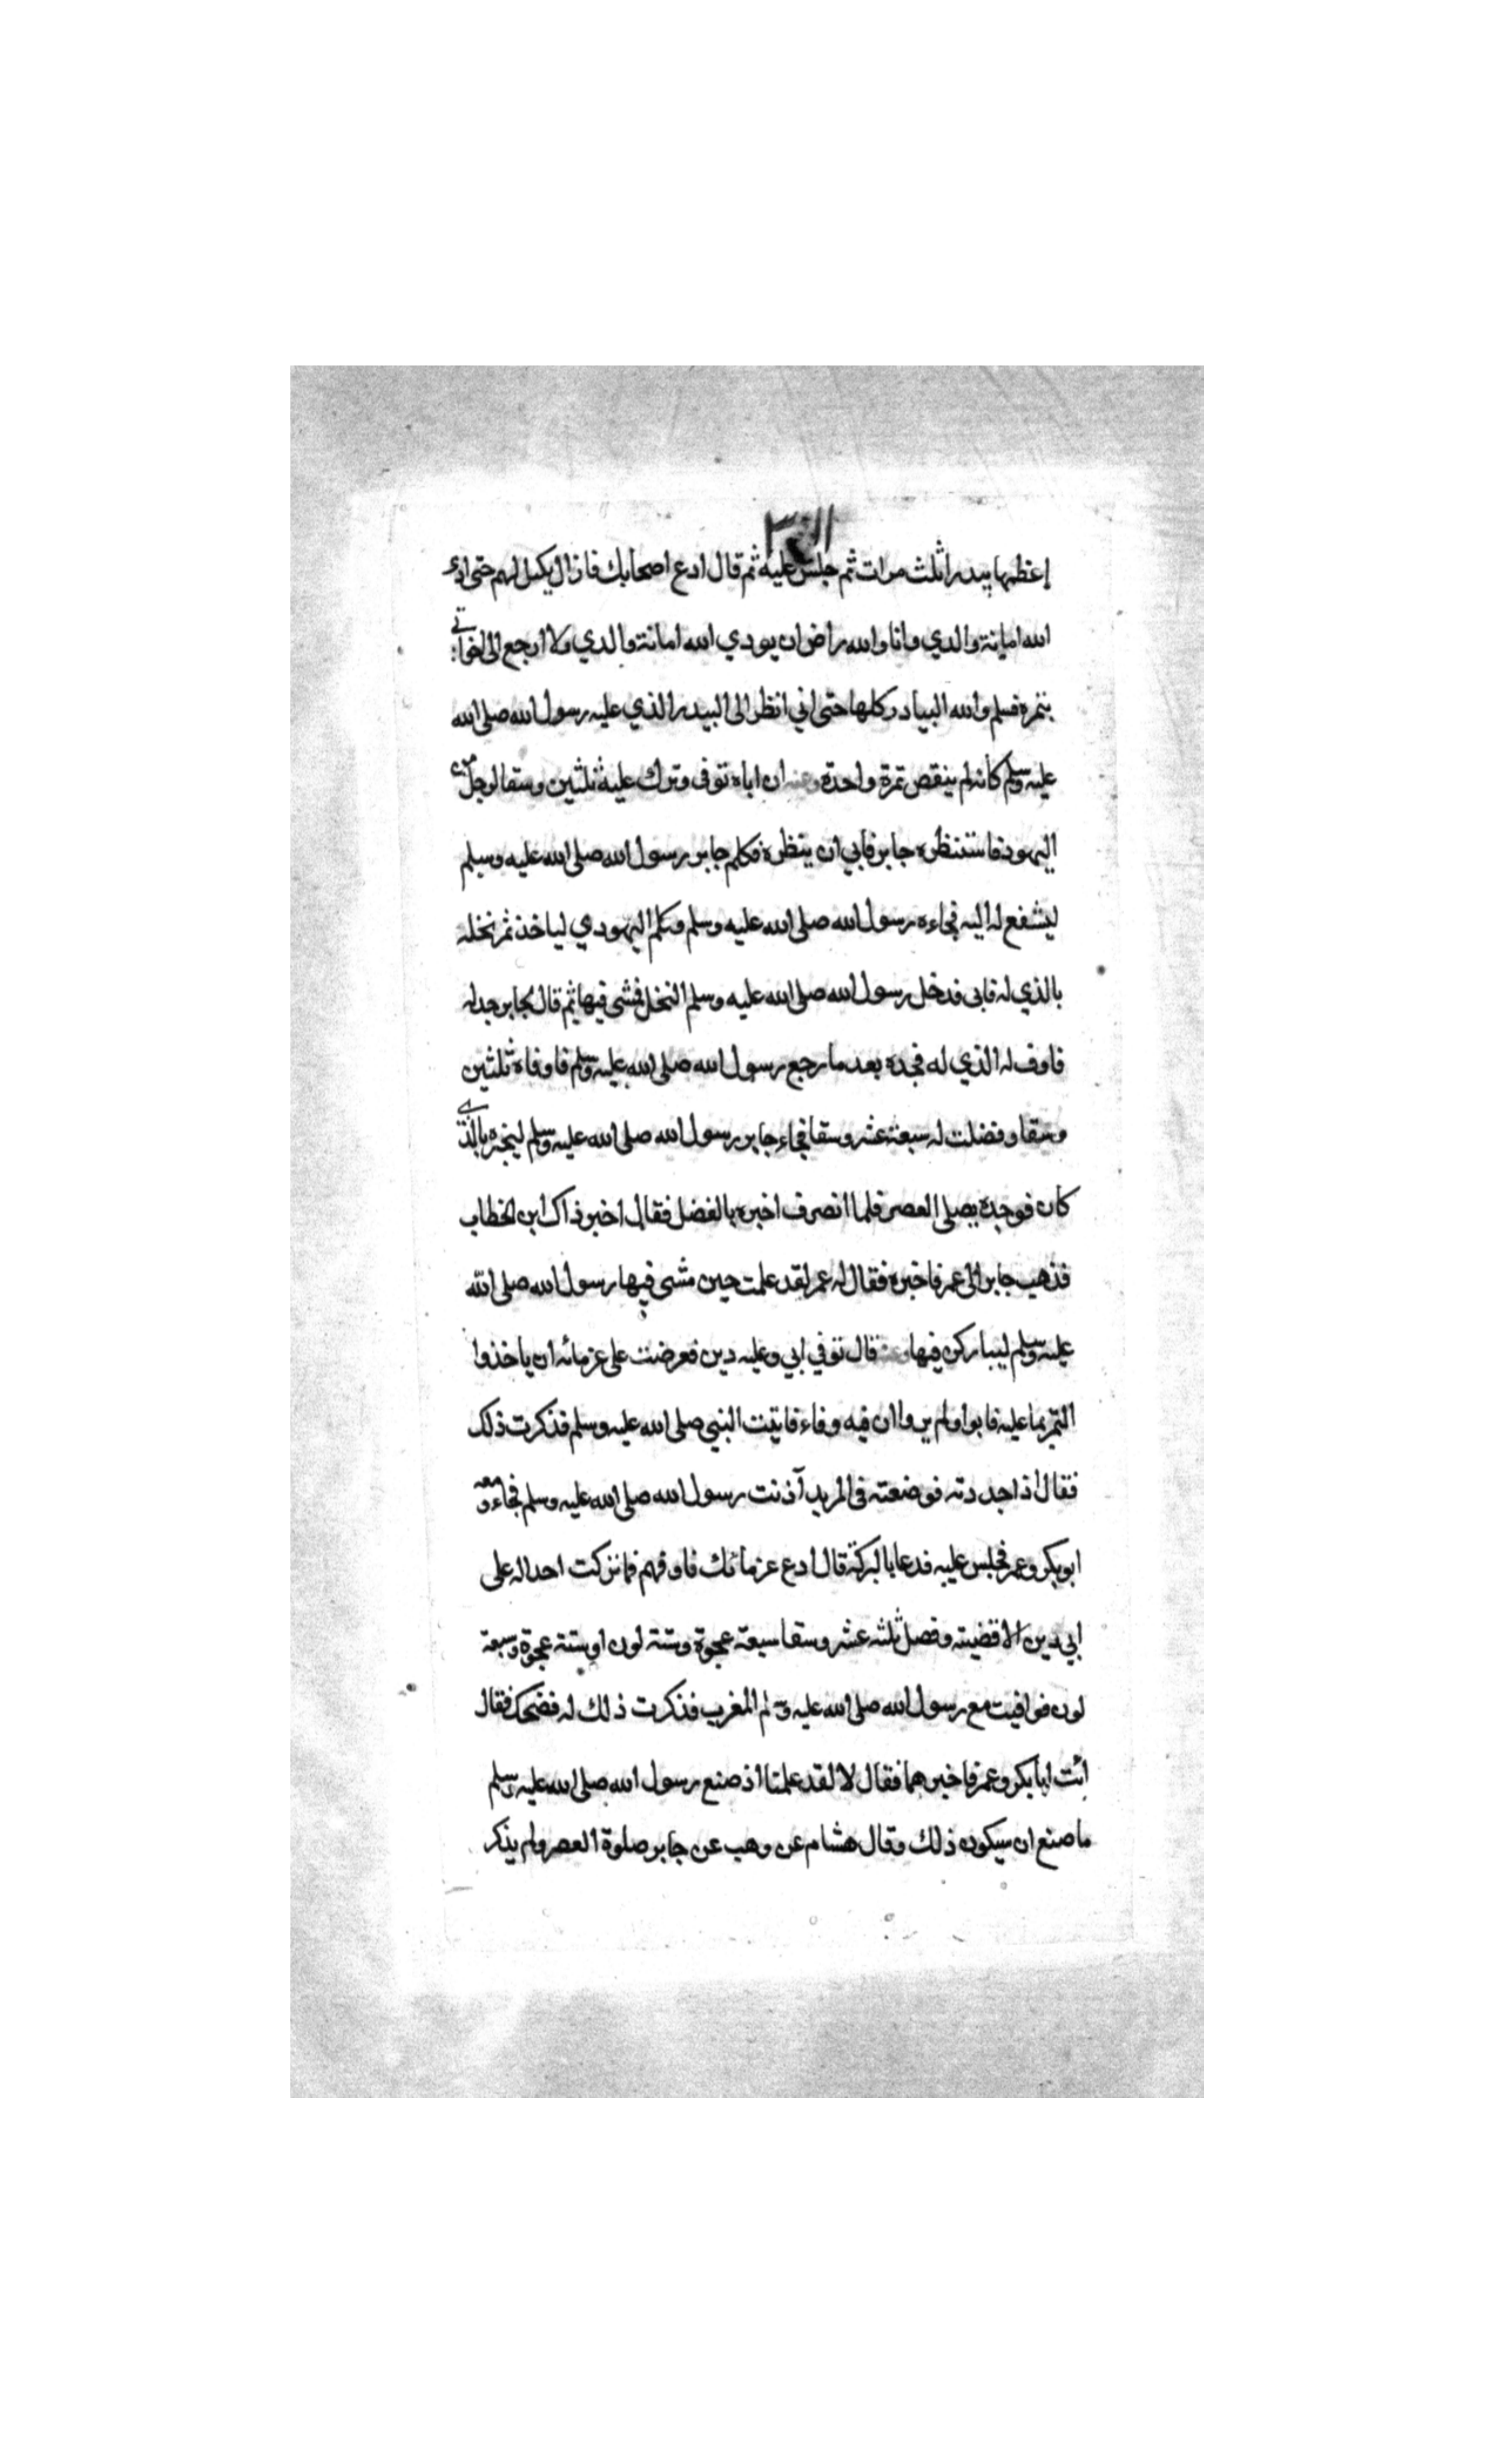 اعظمها بيدرا ثلث مرات ثم جلس عليه ثم قال ادع اصحابك فما زال يكيل لهم حتى ادى
الله امانة والدي وانا والله راض ان يودي الله امانة والدي ولا ارجع الى اخواتي
بتمرة فسلم والله البيادر كلها حتى اني انظر الى البيدر الذي عليه رسول الله صلى الله
عليه وسلم كانه لم ينقص تمرة واحدة وعنه ان اباه توفى وترك عليه ثلثين وسقا لرجل من
اليهود فاستنظره جابر فابي ان ينظره فكلم جابر رسول الله صلى الله عليه وسلم
ليشفع له اليه فجاءه رسول الله صلى الله عليه وسلم وكلم اليهودي لياخذ ثمر نخله
بالذي له فابى فدخل رسول الله صلى الله عليه وسلم النخل فمشى فيها ثم قال لجابر جد له
فاوف له الذي له فجده بعد ما رجع رسول الله صلى الله عليه وسلم فاوفاه ثلثين
وسقا وفضلت له سبعة عشر وسقا فجاء جابر رسول الله صلى الله عليه وسلم ليخبره بالذي
كان فوجده يصلى العصر فلما انصرف اخبره بالفضل فقال اخبر ذاك ابن الخطاب
فذهب جابر الى عمر فاخبره فقال له عمر لقد علمت حين مشى فيها رسول الله صلى الله
عليه وسلم ليباركن فيها وعنه قال توفي ابي وعليه دين فعرضت على غرمائه ان ياخذوا
التمر بما عليه فابوا ولم يروا ان فيه وفاء فاتيت النبي صلى الله عليه وسلم فذكرت ذلك
فقال اذا جددته فوضعته فى المربد آذنت رسول الله صلى الله عليه وسلم فجاء ومعه
ابو بكر وعمر فجلس عليه فدعا بالبركة قال ادع غرمائك فاوفهم فما تركت احدا له على
ابي دين الا قضيته وفضل ثلثه عشر وسقا سبعة عجوة وستة لون او ستة عجوة وسبعة
لون فوافيت مع رسول الله صلى الله عليه وسلم المغرب فذكرت ذلك له فضحك فقال
ائت ابا بكر وعمر فاخبرهما فقال لا لقد علمنا اذ صنع رسول الله صلى الله عليه وسلم
ما صنع ان سيكون ذلك وقال هشام عن وهب عن جابر صلوة العصر ولم يذكر